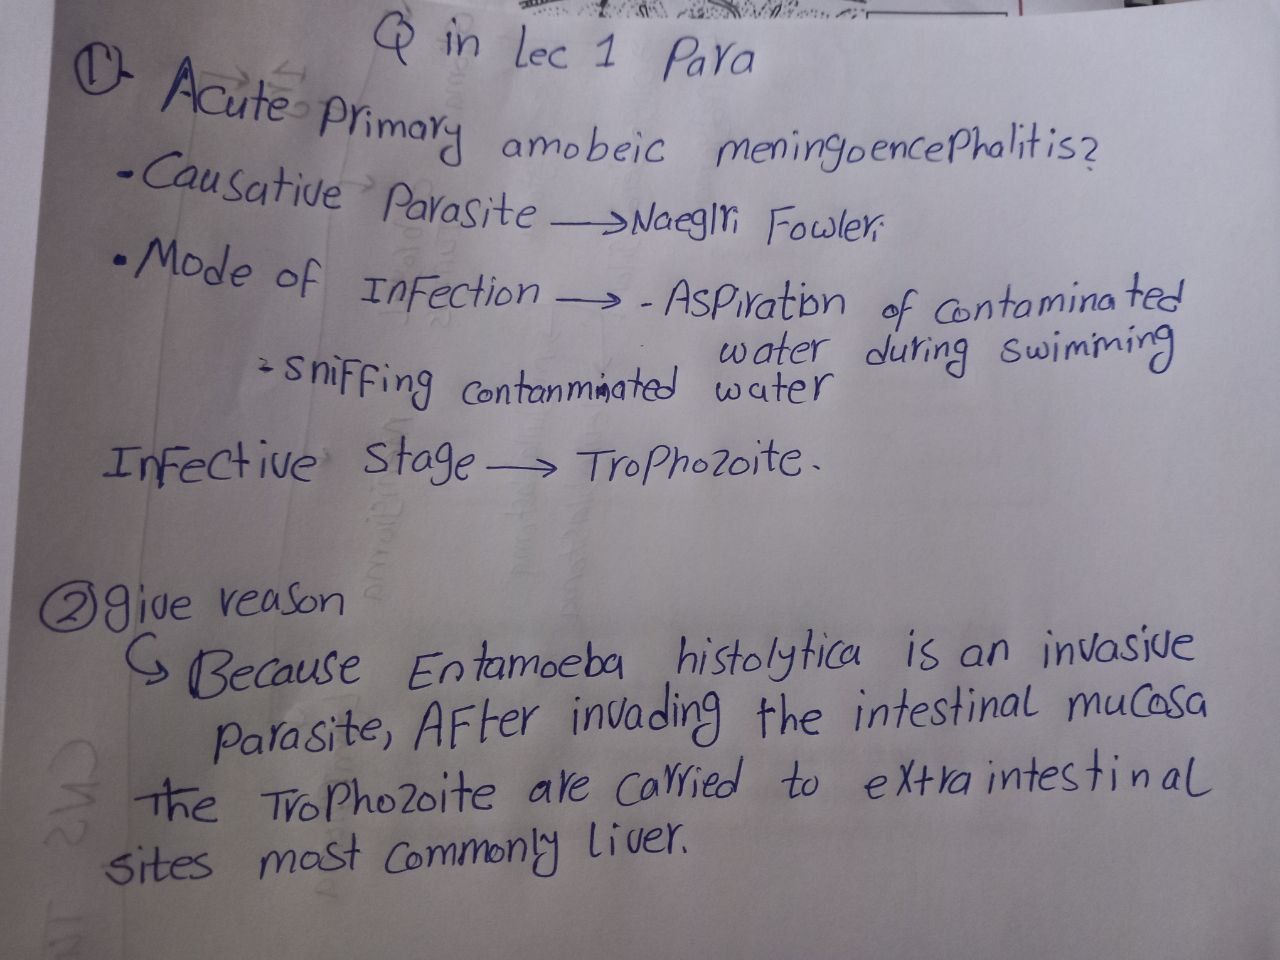 Q in Lec 1 Para
① Acute Primary amobeic meningoencephalitis?
• Causative Parasite → Naeglri Fowleri
• Mode of Infection → - Aspiration of contaminated
water during swimming
- Sniffing contanminated water
Infective Stage → Trophozoite.
② give reason
↳ Because Entamoeba histolytica is an invasive
Parasite, After invading the intestinal mucosa
The Trophozoite are carried to extraintestinal
sites most commonly liver.